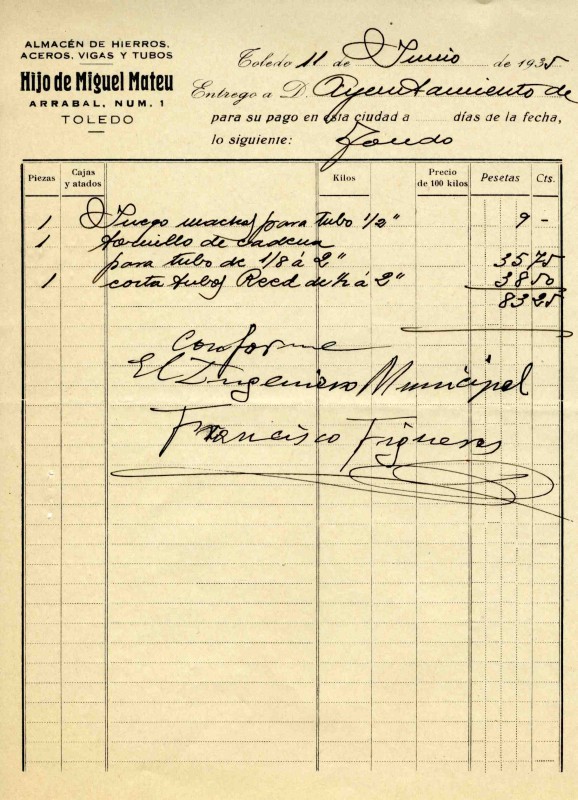 ALMACÉN DE HIERROS,
ACEROS, VIGAS Y TUBOS
Hijo de Miguel Mateu
ARRABAL, NUM. 1
TOLEDO
Toledo 11 de Junio de 1935
Entrego a D. Ayuntamiento de
para su pago en esta ciudad a días de la fecha,
lo siguiente:
Piezas Cajas y atados Kilos Precio de 100 kilos Pesetas Cts.
1 Juego machos para tubo 1/2" 9 -
1 tornillo de cadena
para tubo de 1/8 á 2" 35 75
1 corta tubos Reed de 1/2 á 2" 38 50
83 25
Conforme
El Ingeniero Municipal
Francisco Figueras